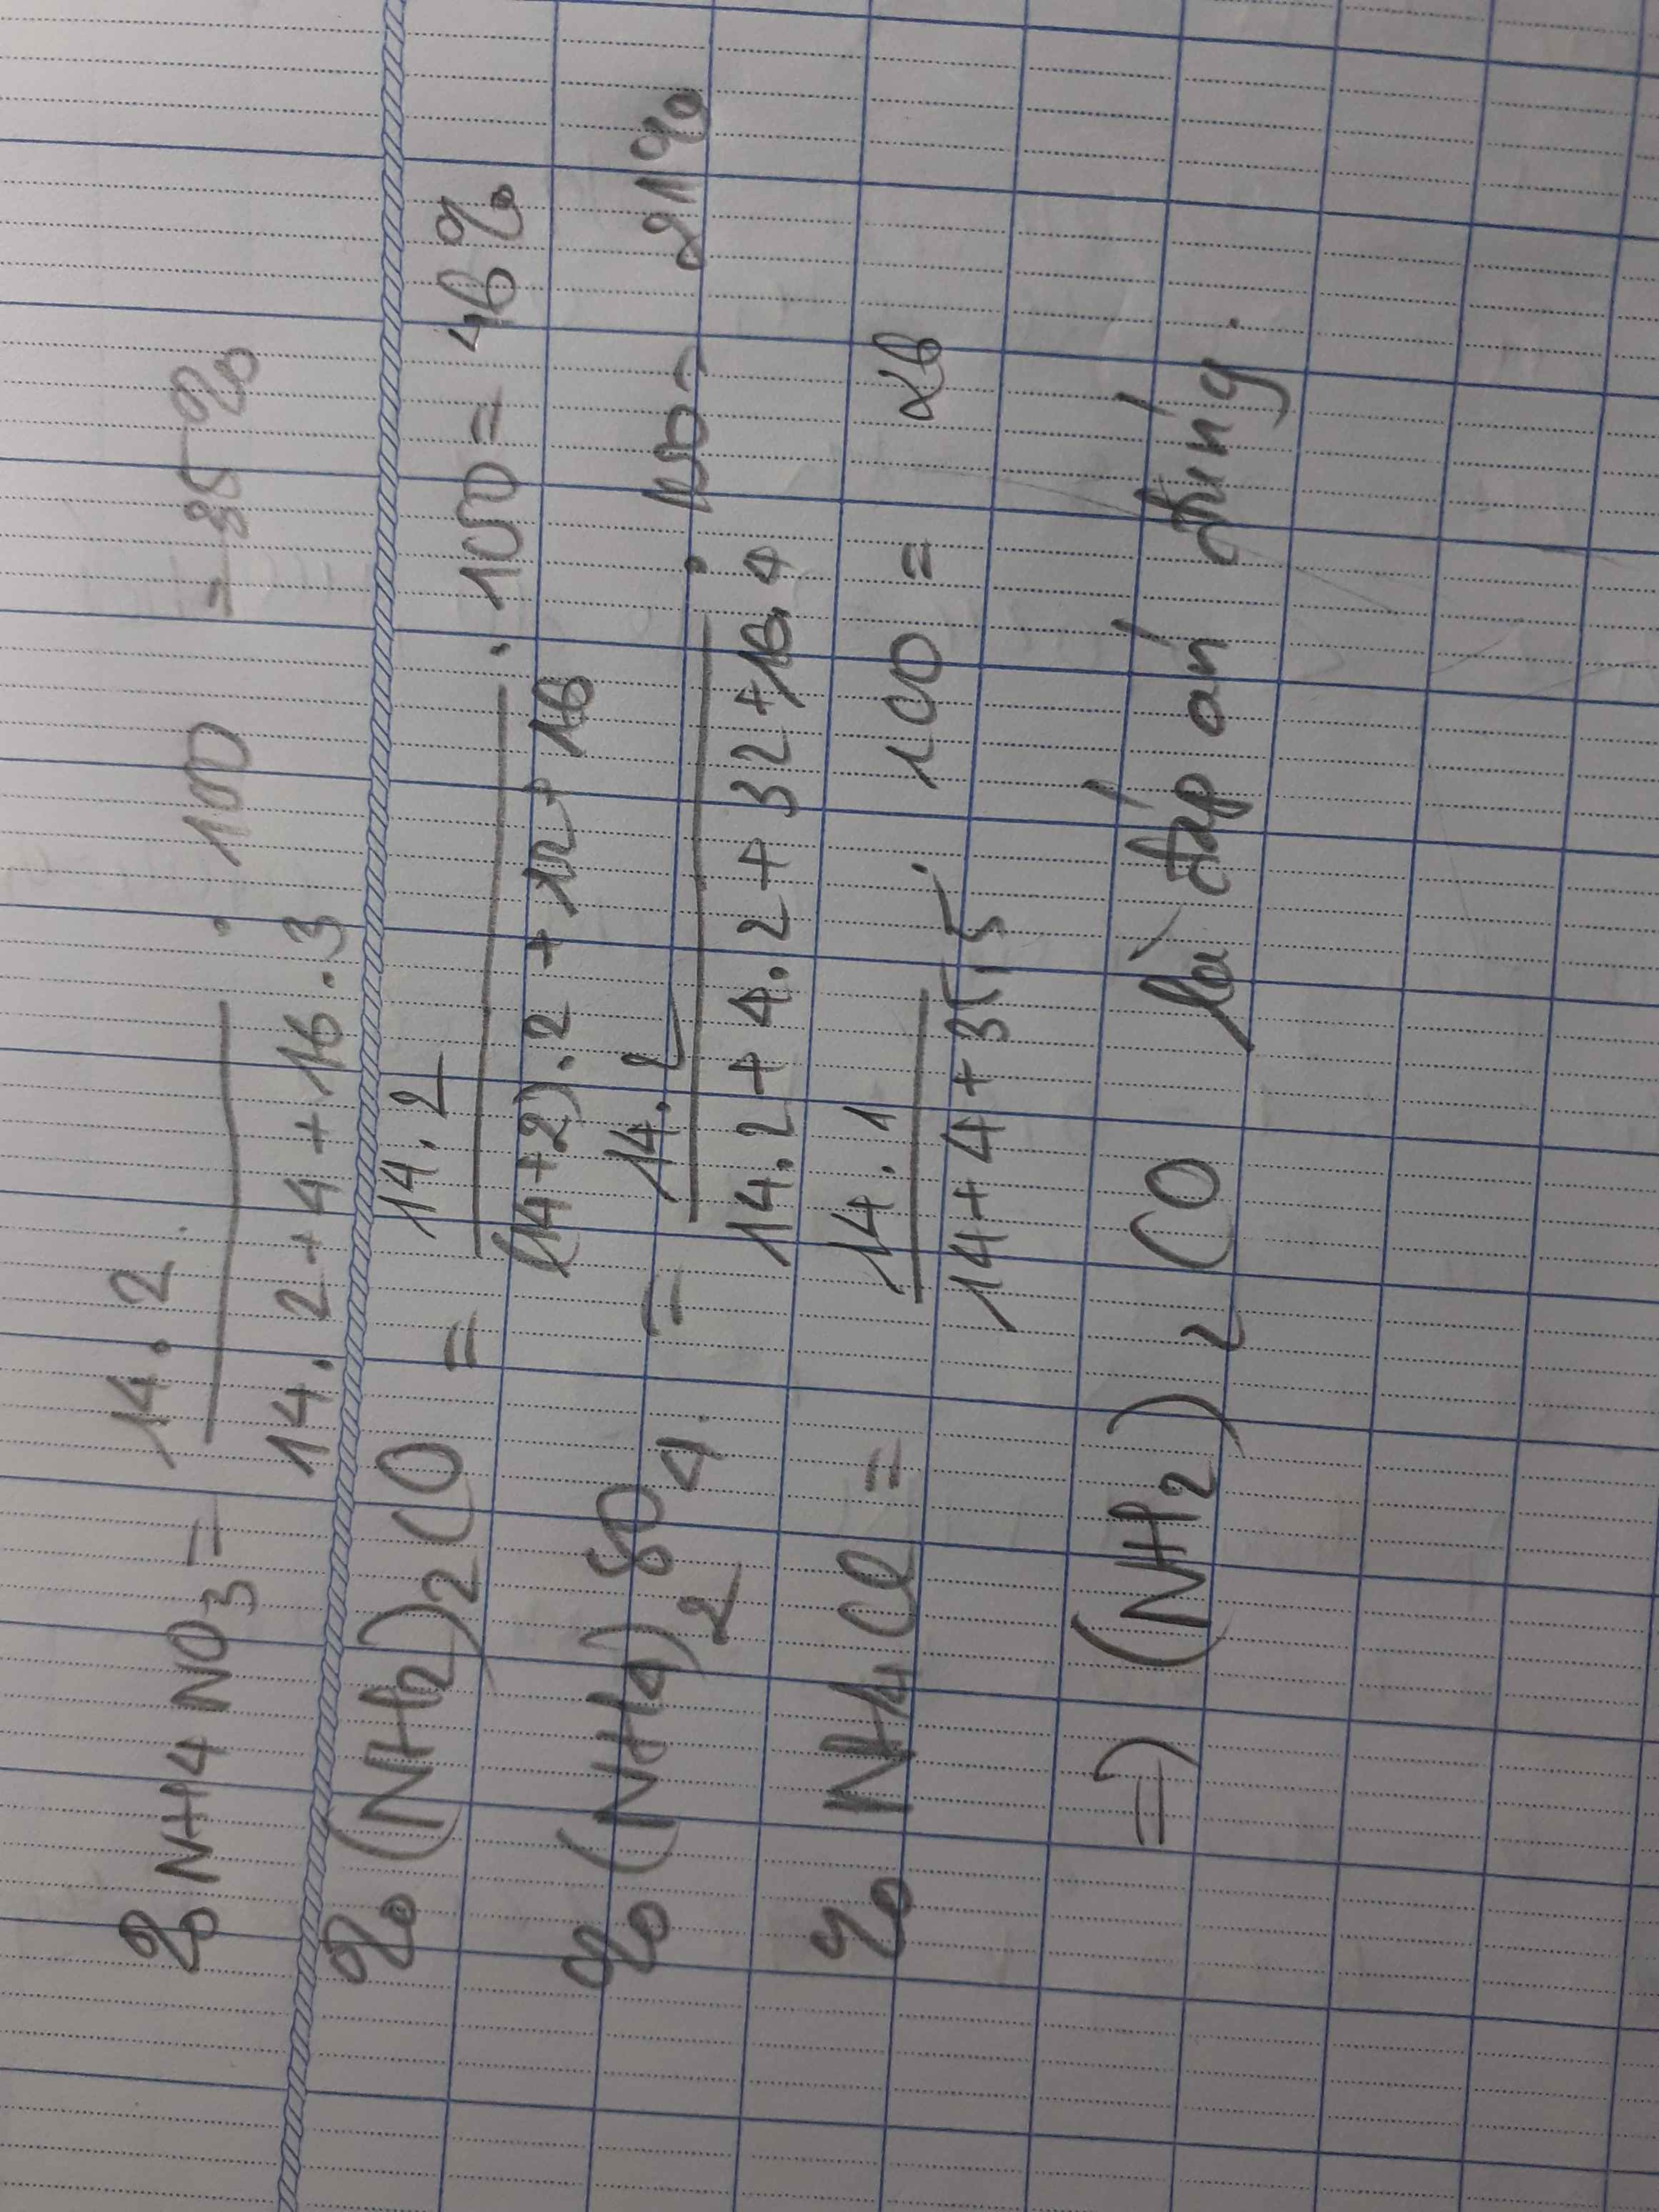 % NH4 NO3 = 14.2 / 14.2+4+16.3 . 100 = 35%
% (NH2)2 CO = 14.2 / (14+2).2+12+16 . 100 = 46%
% (NH4)2 SO4 = 14.2 / 14.2+4.2+32+16.4 . 100 = 21%
% NH4 Cl = 14.1 / 14+4+35,5 . 100 = 26
=) (NH2)2 CO là đáp án đúng.